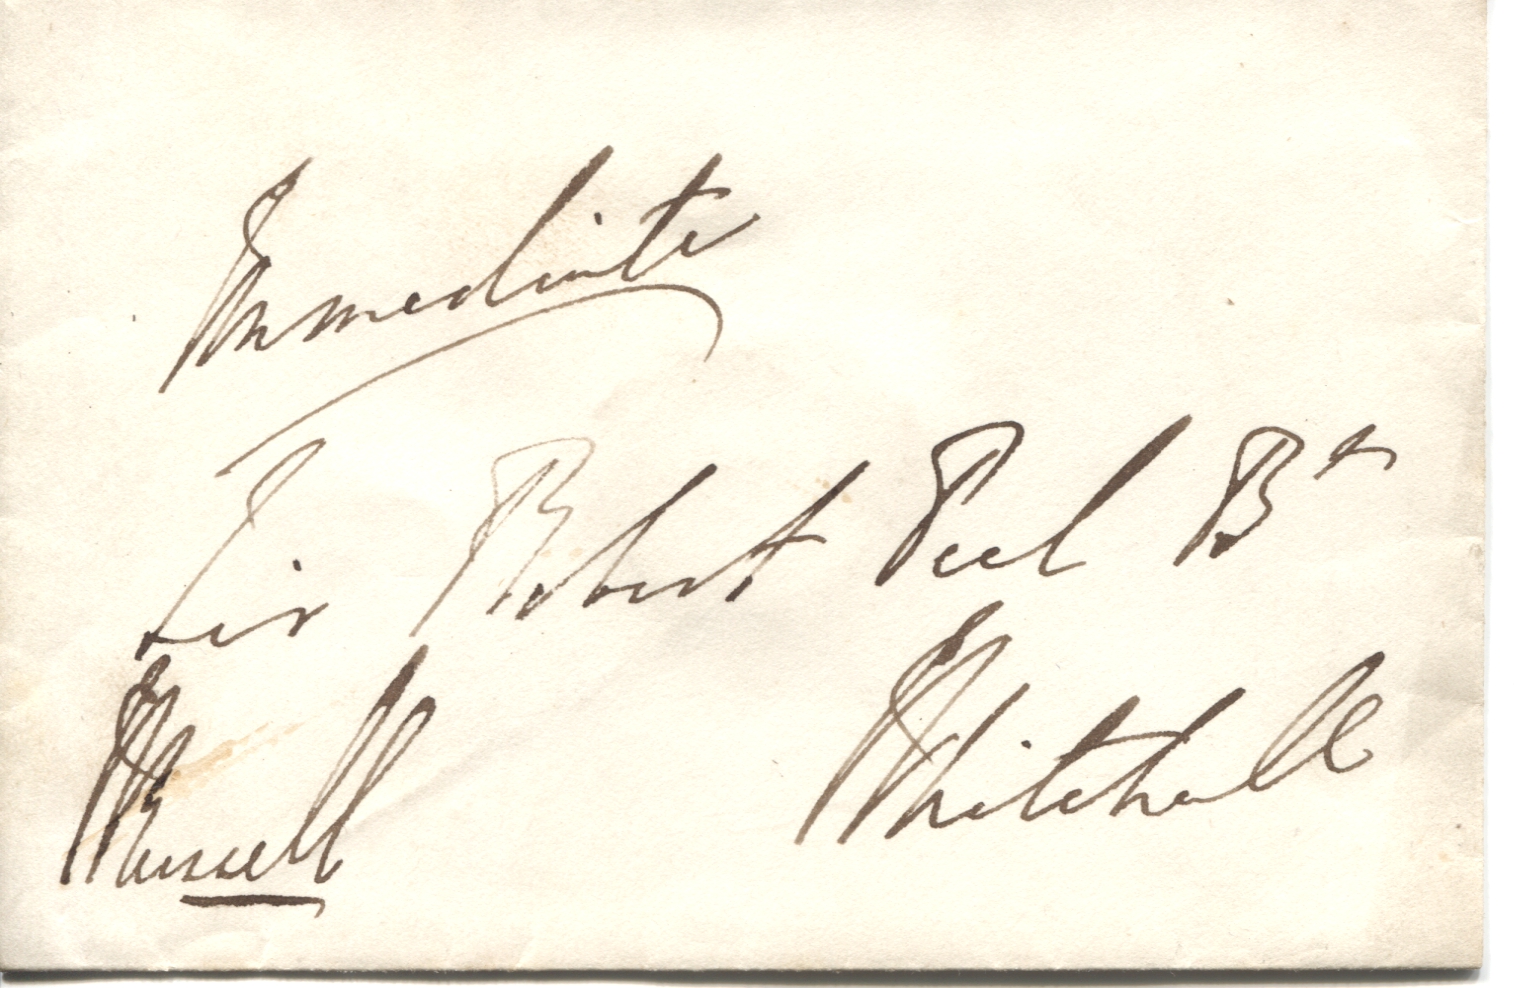 Immediate
Sir Robert Peel Bt
JRussell
Whitehall